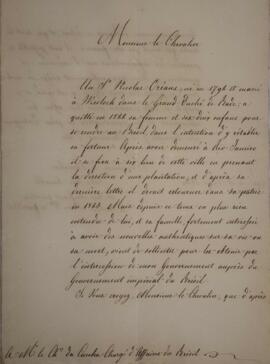 Monsieur le Chevalier
Un Sr Nicolas Créans, né en 1796 et marié
à Wiesloch dans le Grand Duché de Bade, a
quitté en 1844 sa femme et six enfans pour
se rendre au Brésil dans l'intention d'y établir
sa fortune. Après avoir demeuré à Rio Janeiro
il se fixa à six lieu de cette ville en prenant
la direction d'une plantation, et d'après sa
dernière lettre il devait retourner dans sa patrie
en 1848. Mais depuis ce tems on plus rien
entendu de lui, et sa famille, fortement intéressée
à avoir des nouvelles authentiques sur sa vie ou
sa mort, vient de solliciter pour les obtenir par
l'intercession de mon Gouvernement auprès du
Gouvernement impérial du Brésil.
Si Vous croyez, Monsieur le Chevalier, que d'après
à Mr le Chr da Cunha Chargé d'Affaires du Brésil